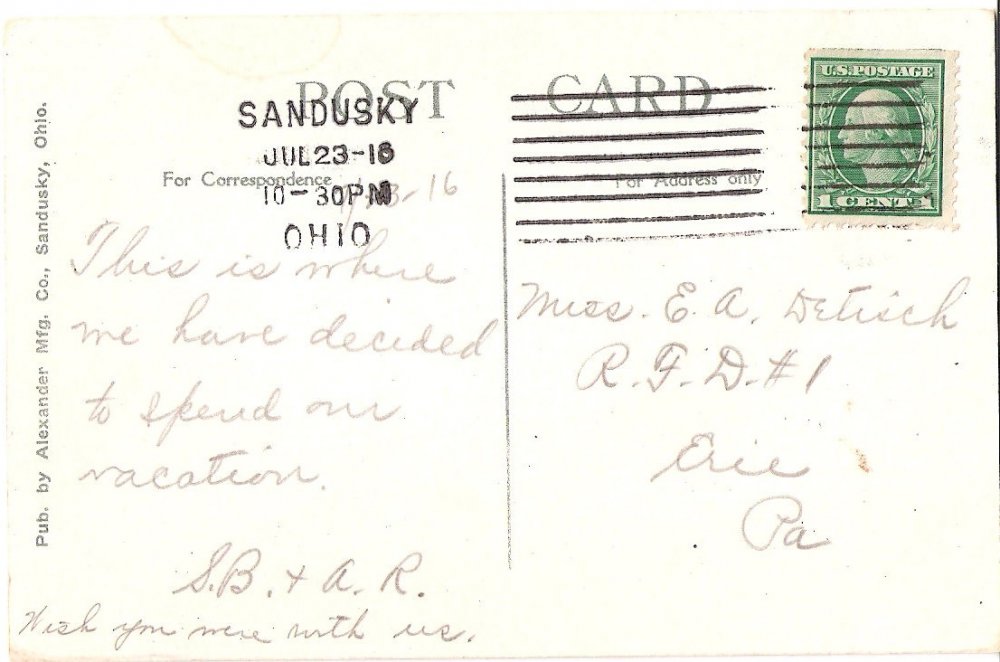 POST CARD
SANDUSKY
JUL 23-16
10-30PM
OHIO
U.S. POSTAGE
1 CENT
For Correspondence
For Address only
Pub. by Alexander Mfg. Co., Sandusky, Ohio.
This is where
we have decided
to spend our
vacation.
S.B. + A. R.
Wish you were with us.
Miss. E. A. Detisch
R. F. D. #1
Erie
Pa